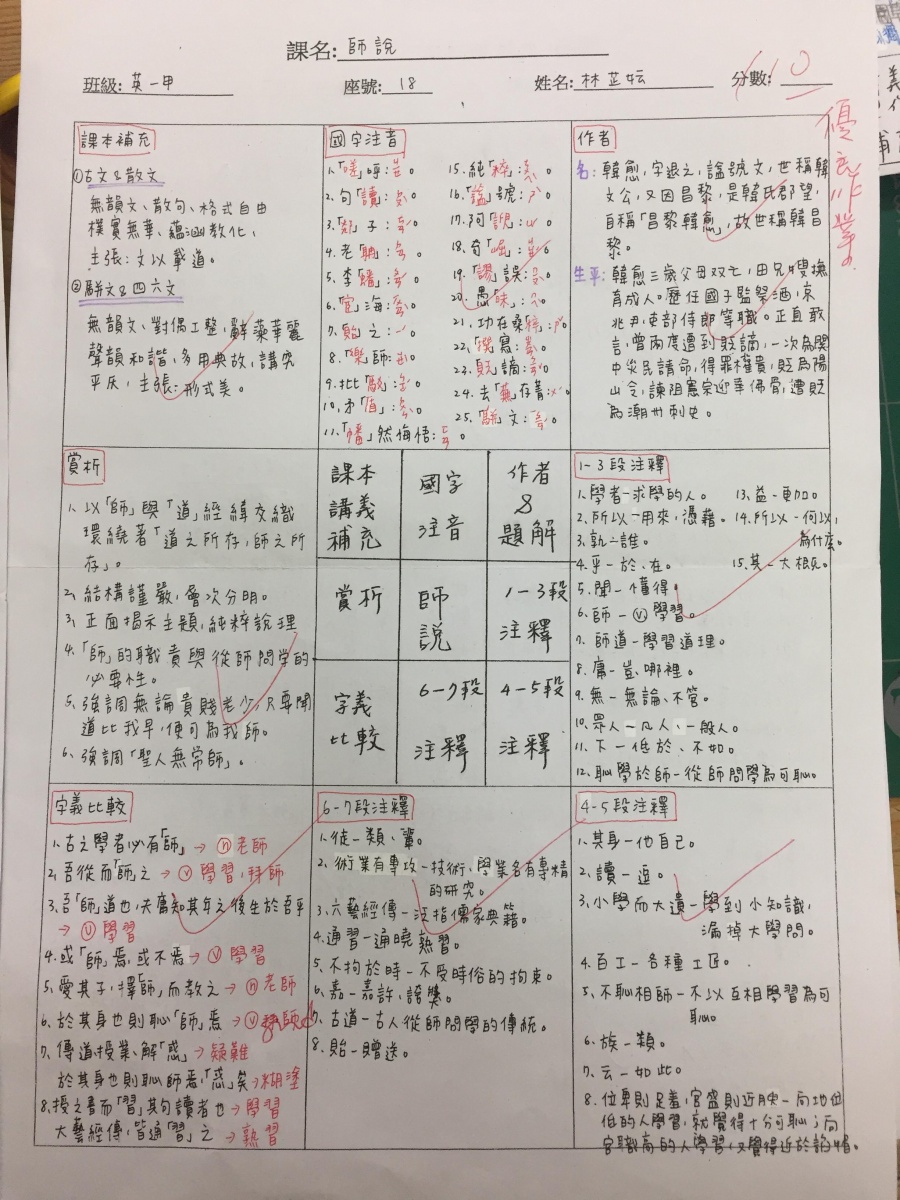 課名: 師說
班級: 英一甲 座號: 18 姓名: 林芷妘 分數: 110
優良作業
課本補充
①古文&散文
無韻文、散句、格式自由
樸實無華、蘊涵教化、
主張:文以載道。
②駢文&四六文
無韻文、對偶工整,辭藻華麗
聲韻和諧,多用典故,講究
平仄,主張:形式美。
國字注音
1.「嗟」呼:
2.句「讀」:
3.「郯」子:
4.老「聃」:
5.李「蟠」:
6.「宦」海:
7.「貽」之:
8.「樂」師:
9.批「駁」:
10.矛「盾」:
11.「幡」然悔悟:
15.純「粹」:
16.「謚」號:
17.阿「諛」:
18.奇「崛」:
19.「謬」誤:
20.愚「昧」:
21.功在桑「梓」:
22.「撰」寫:
23.「貶」謫:
24.去「蕪」存菁:
25.「駢」文:
作者
名:韓愈,字退之,諡號文,世稱韓
文公,又因昌黎,是韓氏郡望,
自稱「昌黎韓愈」,故世稱韓昌
黎。
生平:韓愈三歲父母双亡,由兄嫂撫
育成人。歷任國子監祭酒,京
兆尹,吏部侍郎等職。正直敢
言,曾兩度遭到貶謫,一次為関
中災民請命,得罪權貴,貶為陽
山令,諫阻憲宗迎華佛骨,遭貶
為潮州刺史。
賞析
1.以「師」與「道」經緯交織
環繞著「道之所存,師之所
存」。
2.結構謹嚴,層次分明。
3.正面揭示主題,純粹說理
4.「師」的職責與從師問学的
必要性。
5.強調無論貴賤老少,只要聞
道比我早,便可為我師。
6.強調「聖人無常師」。
課本講義補充
國字注音
作者&題解
賞析
師說
1-3段注釋
字義比較
6-7段注釋
4-5段注釋
1-3段注釋
1.學者-求學的人。 13.益-更加。
2.所以-用來,憑藉。 14.所以-何以,
為什麼。
3.孰-誰。
4.乎-於、在。 15.其-大概。
5.聞-懂得。
6.師-ⓥ學習。
7.師道-學習道理。
8.庸-豈、哪裡。
9.無-無論、不管。
10.眾人-凡人、一般人。
11.下-低於、不如。
12.恥學於師-從師問學為可恥。
字義比較
1.古之學者必有「師」→ⓝ老師
2.吾從而「師」之→ⓥ學習,拜師
3.吾「師」道也,夫庸知其年之後生於吾乎
→ⓥ學習
4.或「師」焉,或不焉→ⓥ學習
5.愛其子,擇「師」而教之→ⓝ老師
6.於其身也則恥「師」焉→ⓥ
7.傳道授業、解「惑」→疑難
於其身也則恥師焉,「惑」矣→糊塗
8.授之書而「習」其句讀者也→學習
六藝經傳,皆通「習」之→熟習
6-7段注釋
1.徒-類、輩。
2.術業有專攻-技術、學業各有專精
的研究。
3.六藝經傳-泛指儒家典籍。
4.通習-通曉熟習。
5.不拘於時-不受時俗的拘束。
6.嘉-嘉許、誇獎。
7.古道-古人從師問學的傳統。
8.貽-贈送。
4-5段注釋
1.其身-他自己。
2.讀-逗。
3.小學而大遺-學到小知識,
漏掉大學問。
4.百工-各種工匠。
5.不恥相師-不以互相學習為可
恥。
6.族-類。
7.云-如此。
8.位卑則足羞,官盛則近諛-向地位
低的人學習,就覺得十分可恥;向
官職高的人學習,又覺得近於諂媚。